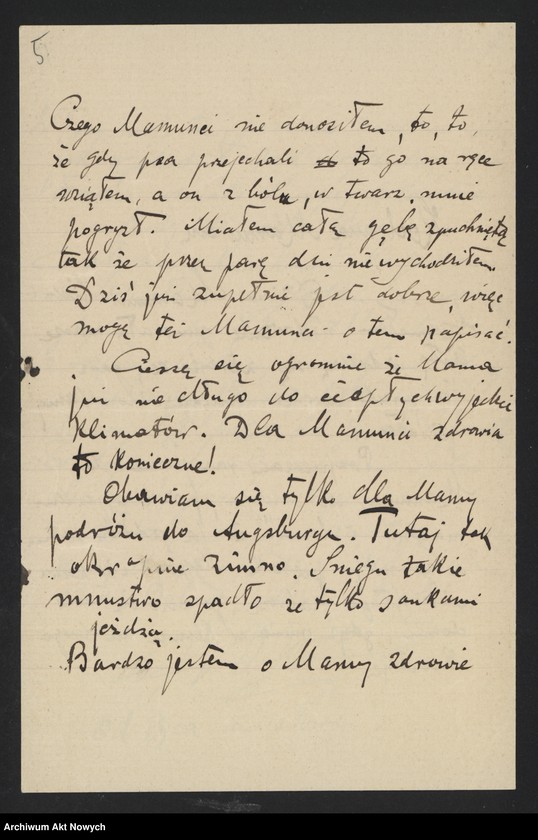 5
Czego Mamunci nie donosiłem, to, to,
że gdy psa przejechali to go na ręce
wziąłem, a on z bólu, w twarz mnie
pogryzł. Miałem całą gębę zpuchniętą
tak że przez parę dni nie wychodziłem.
Dziś już zupełnie jest dobrze, więc
mogę też Mamunci o tem papisać.
Cieszę się ogromnie że Mama
już nie długo do ciepłych wyjedzie
Klimatów. Dla Mamunci zdrowia
to konieczne!
Obawiam się tylko dla Mamy
podróżu do Augsburga. Tutaj tak
okropnie zimno. Śniegu takie
mnustwo spadło że tylko sankami
jeżdżą.
Bardzo jestem o Mamy zdrowie
Archiwum Akt Nowych